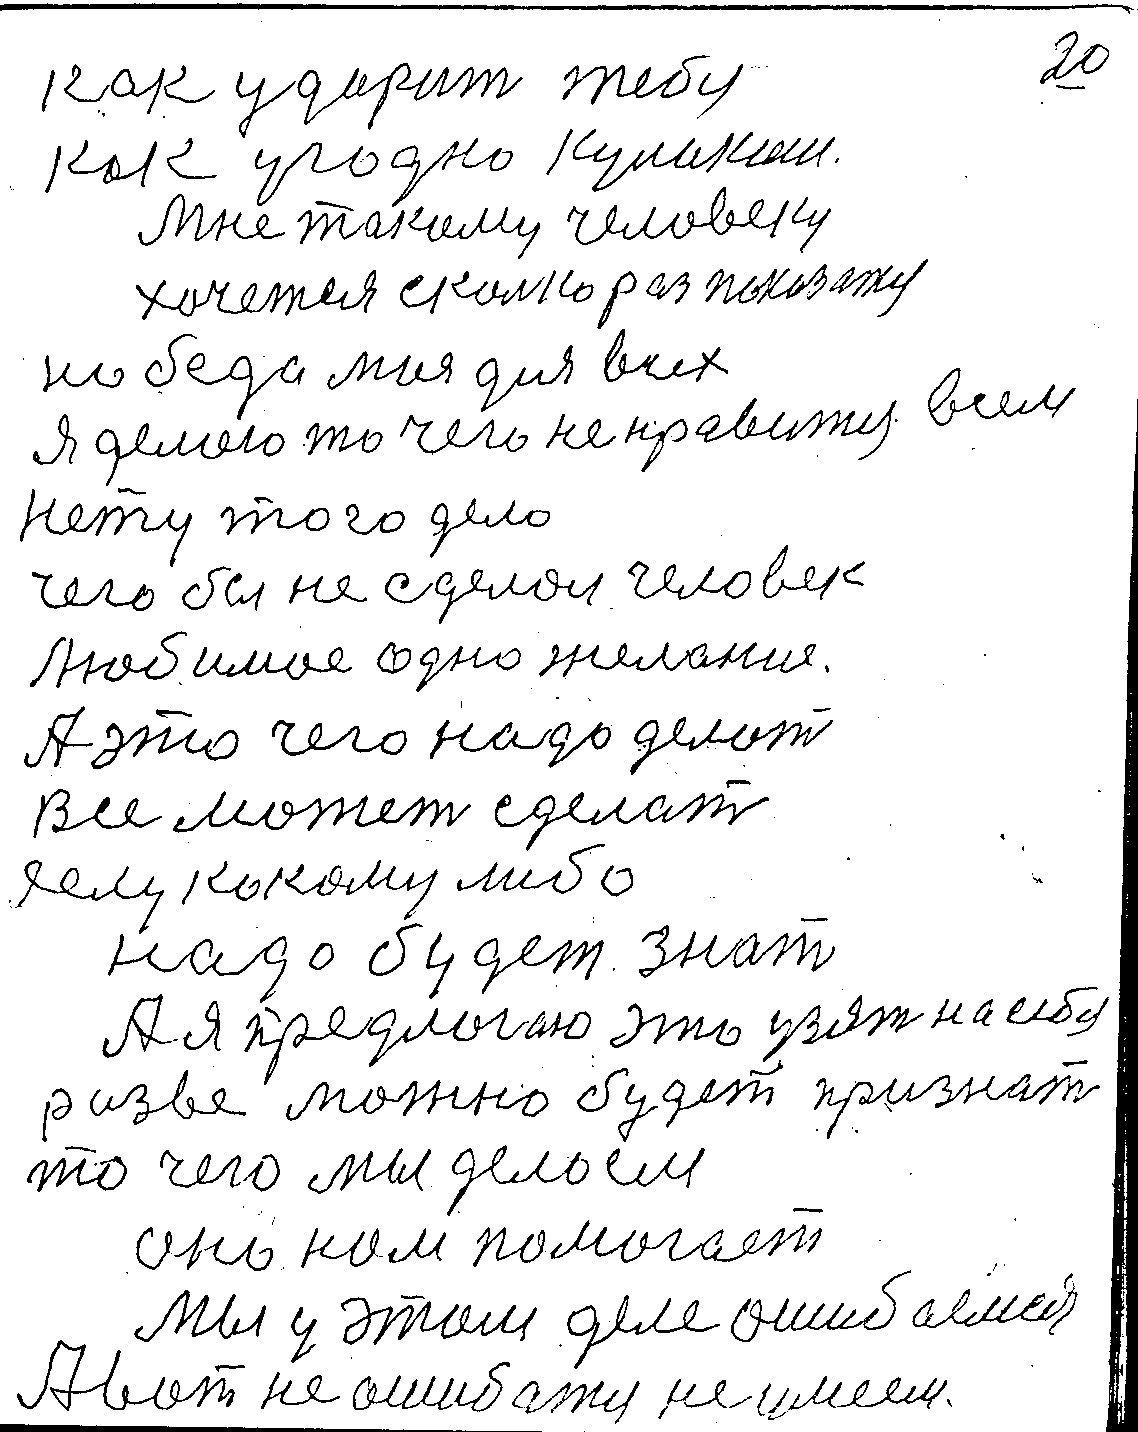 20
как ударит тебя
как угодно кулаком.
Мне такому человеку
хочется сколко раз показатя
но беда моя для всех
Я делаю то чего не нравится всем
Нету того дела
чего бы не сделал человек
Любимое одно желание.
А это чего надо делат
Все может сделат
ему какому либо
надо будет знат
А я предлогаю это узят на себя
разве можно будет признат
то чего мы делаем
оно нам помогает
Мы у этом деле ошибаемся
А вот не ошибатя не умеем.